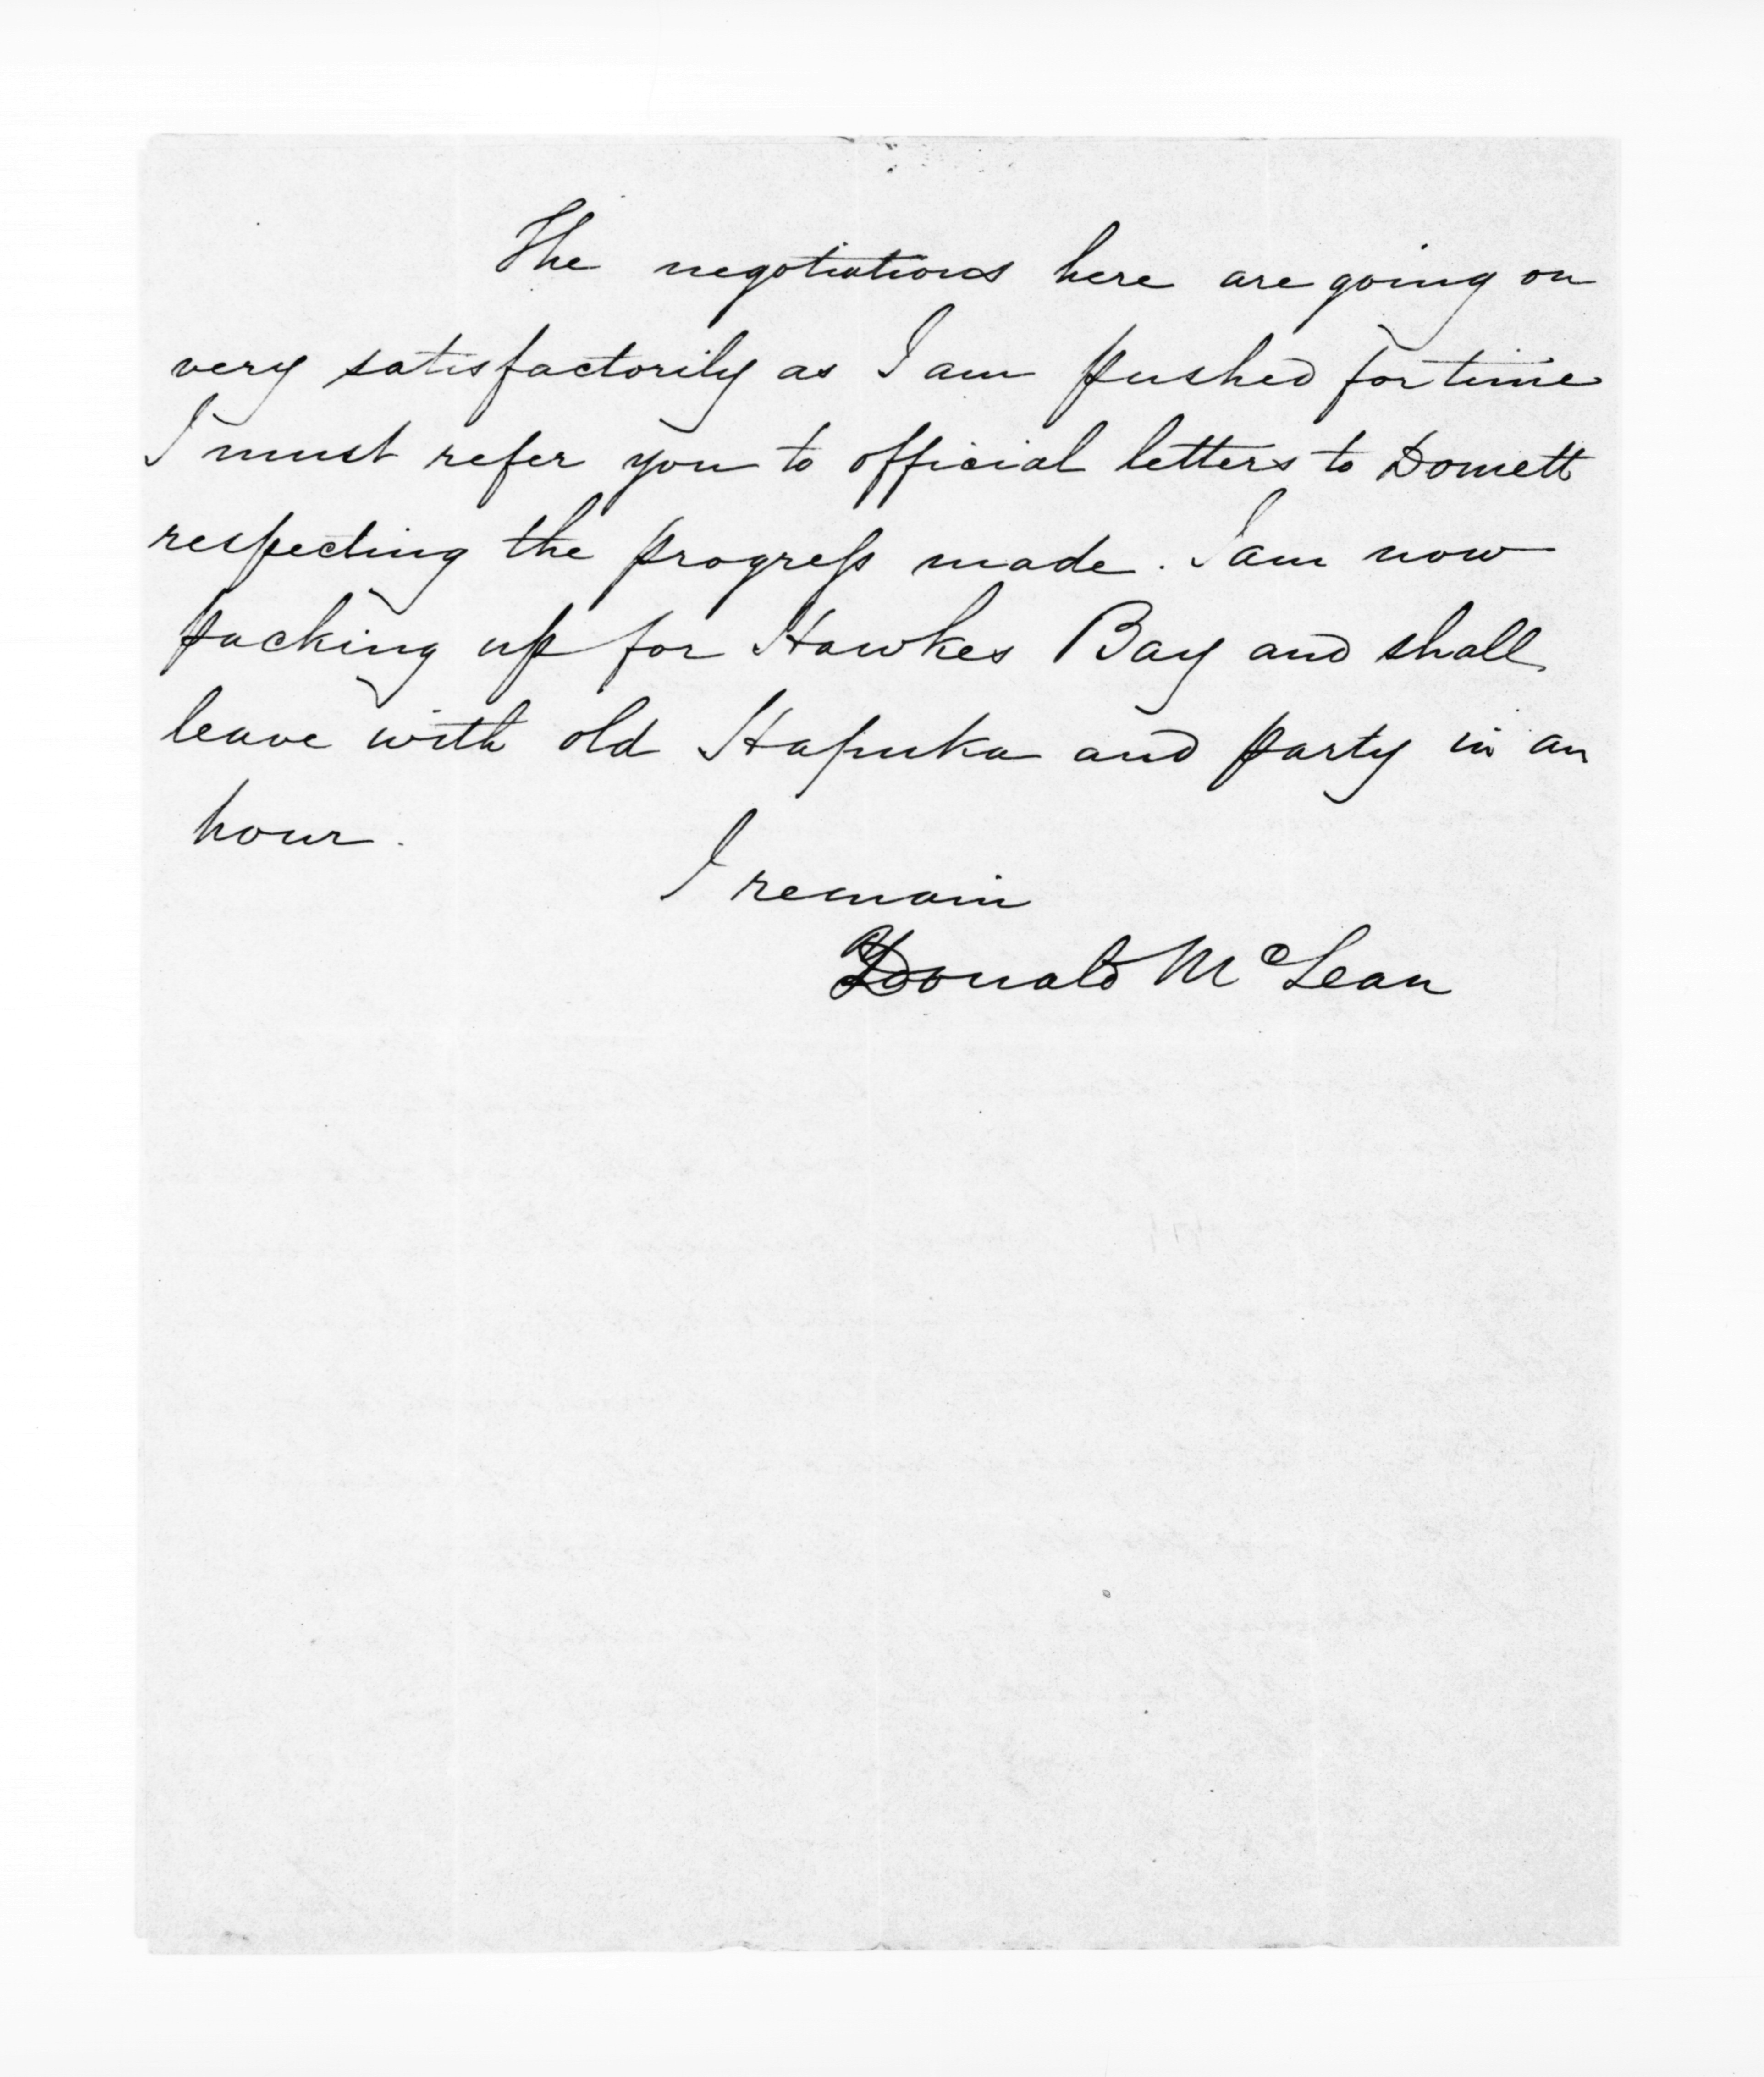 The negotiations here are going on
very satisfactorily as I am pushed for time
I must refer you to official letters to Domett
respecting the progress made. I am now
packing up for Hawkes Bay and shall
leave with old Hapuka and party in an
hour.
I remain
Donald McLean